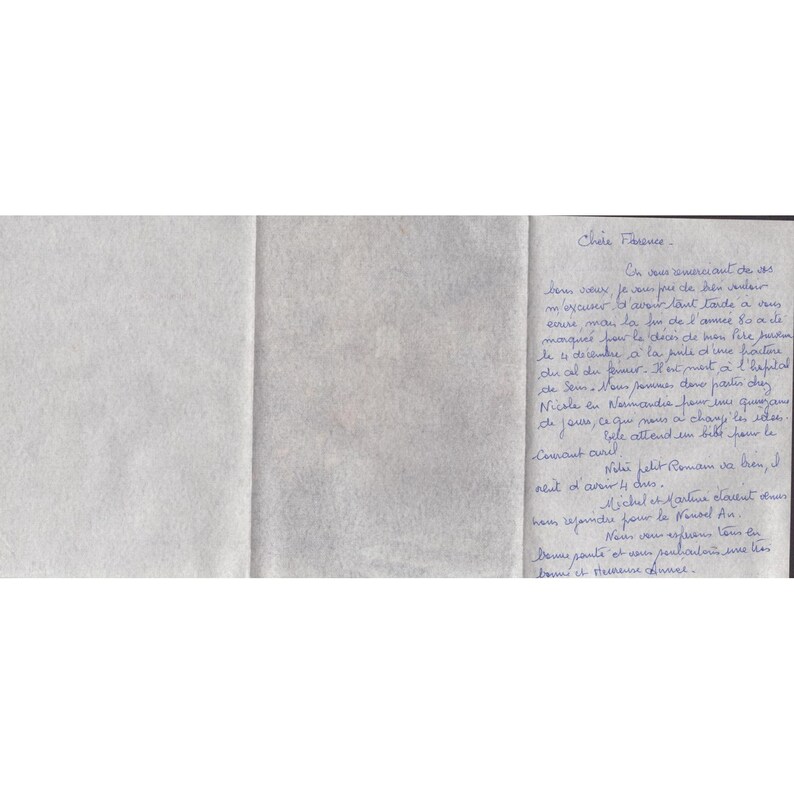 Chère Florence -
En vous remerciant de vos
bons vœux, je vous prie de bien vouloir
m'excuser d'avoir tant tardé à vous
écrire, mais la fin de l'année 80 a été
marquée pour le décès de mon Père survenu
le 4 décembre, à la suite d'une fracture
du col du fémur - Il est mort, à l'hôpital
de Sens - Nous sommes donc partis chez
Nicole en Normandie pour une quinzaine
de jours, ce qui nous a changé les idées.
Elle attend un bébé pour le
Courant avril.
Notre petit Romain va bien, il
vient d'avoir 4 ans.
Michel et Martine étaient venus
nous rejoindre pour le Nouvel An.
Nous vous espérons tous en
bonne santé et vous souhaitons une très
bonne et Heureuse Année -